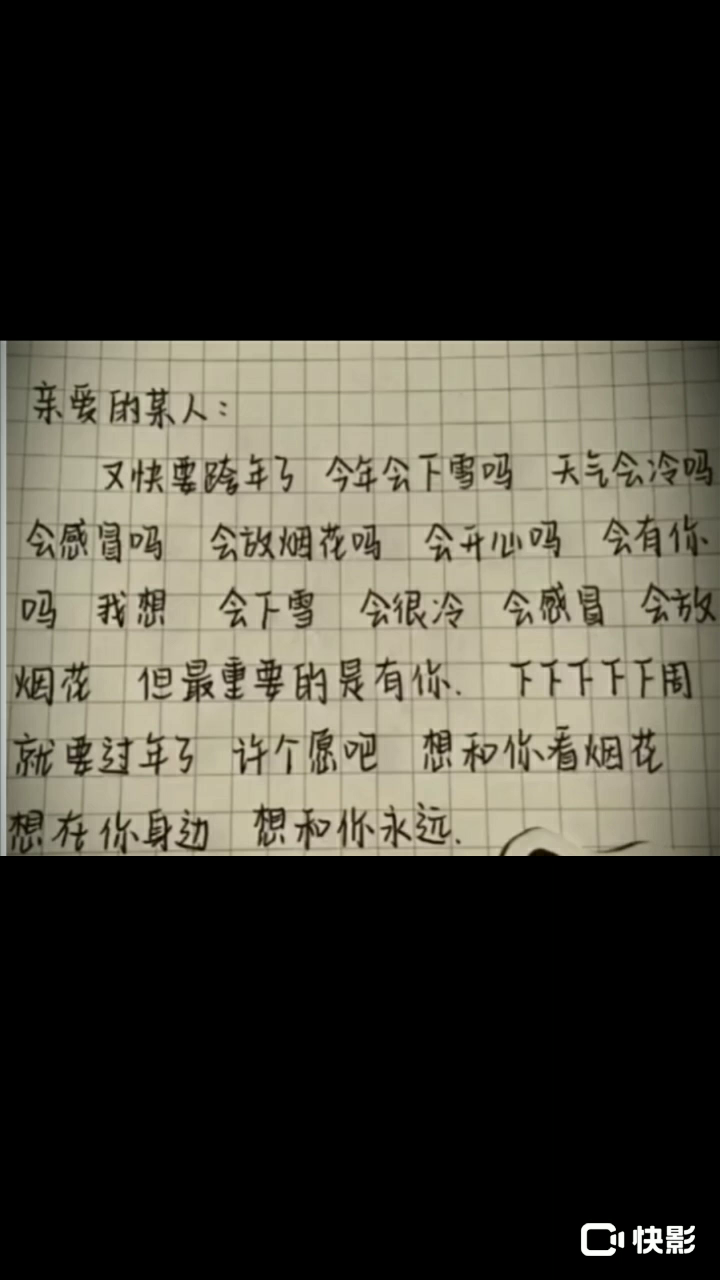 亲爱的某人：
又快要跨年了 今年会下雪吗 天气会冷吗
会感冒吗 会放烟花吗 会开心吗 会有你
吗 我想 会下雪 会很冷 会感冒 会放
烟花 但最重要的是有你.  下下下下下周
就要过年了 许个愿吧 想和你看烟花
想在你身边 想和你永远.
快影